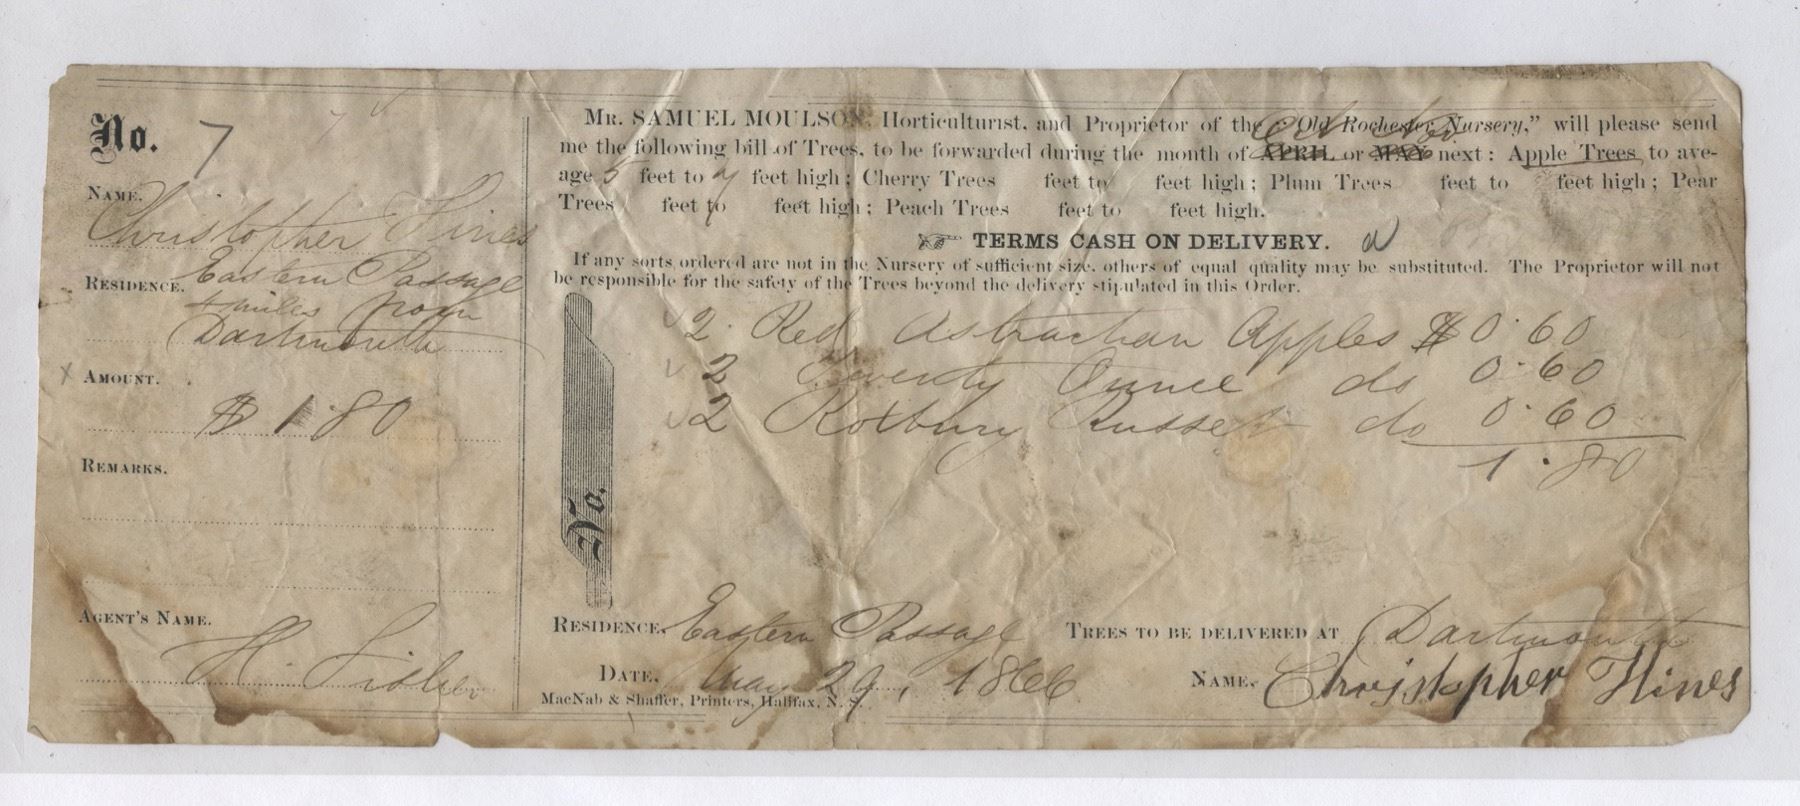 No. 7
NAME.
Christopher Hines
RESIDENCE. Eastern Passage
4 miles from
Dartmouth
x AMOUNT.
$ 1.80
REMARKS.
AGENT'S NAME.
H. Fisher
MR. SAMUEL MOULSON, Horticulturist, and Proprietor of the "Old Rochester Nursery," will please send
me the following bill of Trees, to be forwarded during the month of October APRIL or MAY next: Apple Trees to ave-
age 5 feet to 7 feet high; Cherry Trees feet to feet high; Plum Trees feet to feet high; Pear
Trees feet to feet high; Peach Trees feet to feet high.
TERMS CASH ON DELIVERY.
If any sorts ordered are not in the Nursery of sufficient size, others of equal quality may be substituted. The Proprietor will not
be responsible for the safety of the Trees beyond the delivery stipulated in this Order.
2 Red Astrachan Apples $0.60
2 Twenty Ounce do 0.60
2 Roxbury Russett do 0.60
1.80
No.
RESIDENCE. Eastern Passage TREES TO BE DELIVERED AT Dartmouth
DATE. May 29, 1866 NAME. Christopher Hines
MacNab & Shaffer, Printers, Halifax, N. S.